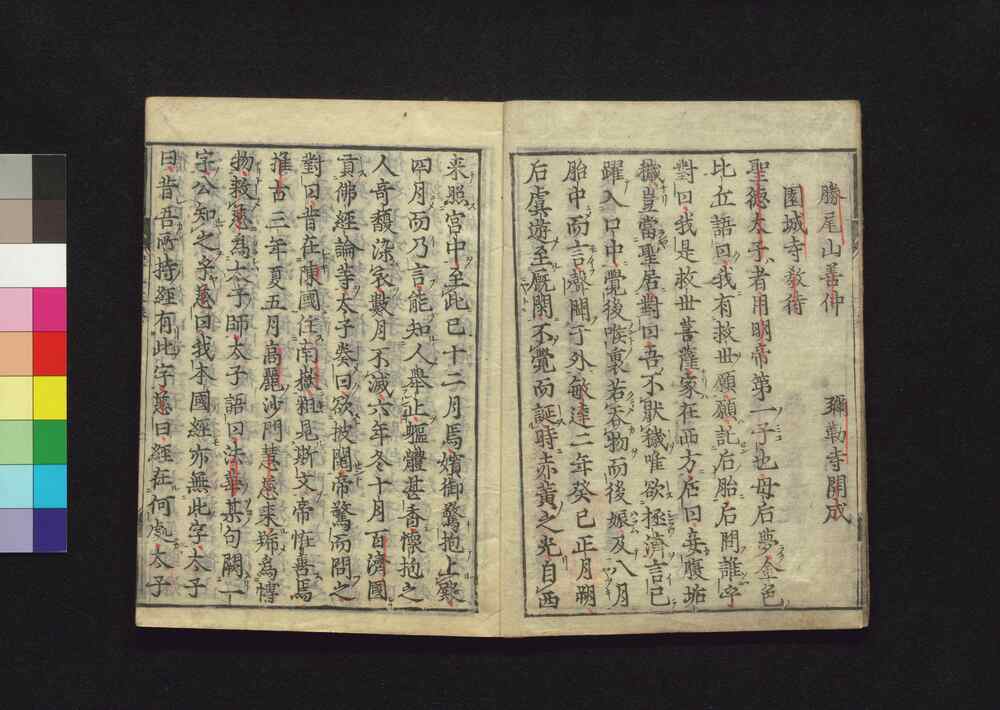 勝尾山善仲　彌勒寺開成
園城寺教待
聖德太子者用明帝第一子也母后夢金色
比丘語曰我有救世願願託后胎后問誰乎
對曰我是救世菩薩家在西方后曰妾腹垢
穢豈當聖居對曰吾不猒穢唯欲拯濟言已
躍入口中覺後喉裏若吞物而後娠及八月
胎中而言聲聞于外敏達二年癸巳正月朔
后虞遊至厩閑不覺而誕時赤黃之光自西
來照宮中至此已十二月焉嬪御驚抱上歘
四月而乃言能知人舉止軀體甚香懷抱之
人奇馥染衣數月不滅六年冬十月百濟國
貢佛經論等太子奏曰欲披閱帝驚而問之
對曰昔在陳國住南嶽粗見斯文帝恠善焉
推古三年夏五月高麗沙門慧慈來歸爲博
物救慈爲太子師太子語曰法華某句闕一
字公知之乎慈曰我本國經亦無此字太子
曰昔吾所持經有此字慈曰經在何處太子